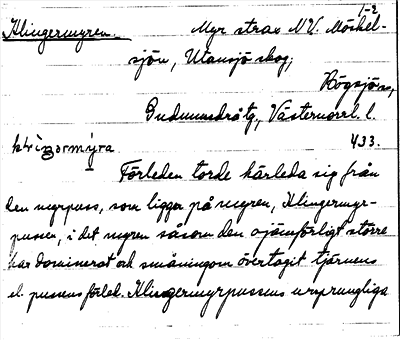 1-2
Klingermyren. Myr strax N.V. Möckel-
sjön, Utansjö skog,
Högsjö sn,
Gudmundråtg, Västernorrl. l.
433.
Förleden torde härleda sig från
den myrpuss, som ligger på myren, Klingermyr-
pussen, i det myren såsom den ojämförligt större
har dominerat och småningom övertagit tjärnens
el. pussens förled. Klingermyrpussens ursprungliga